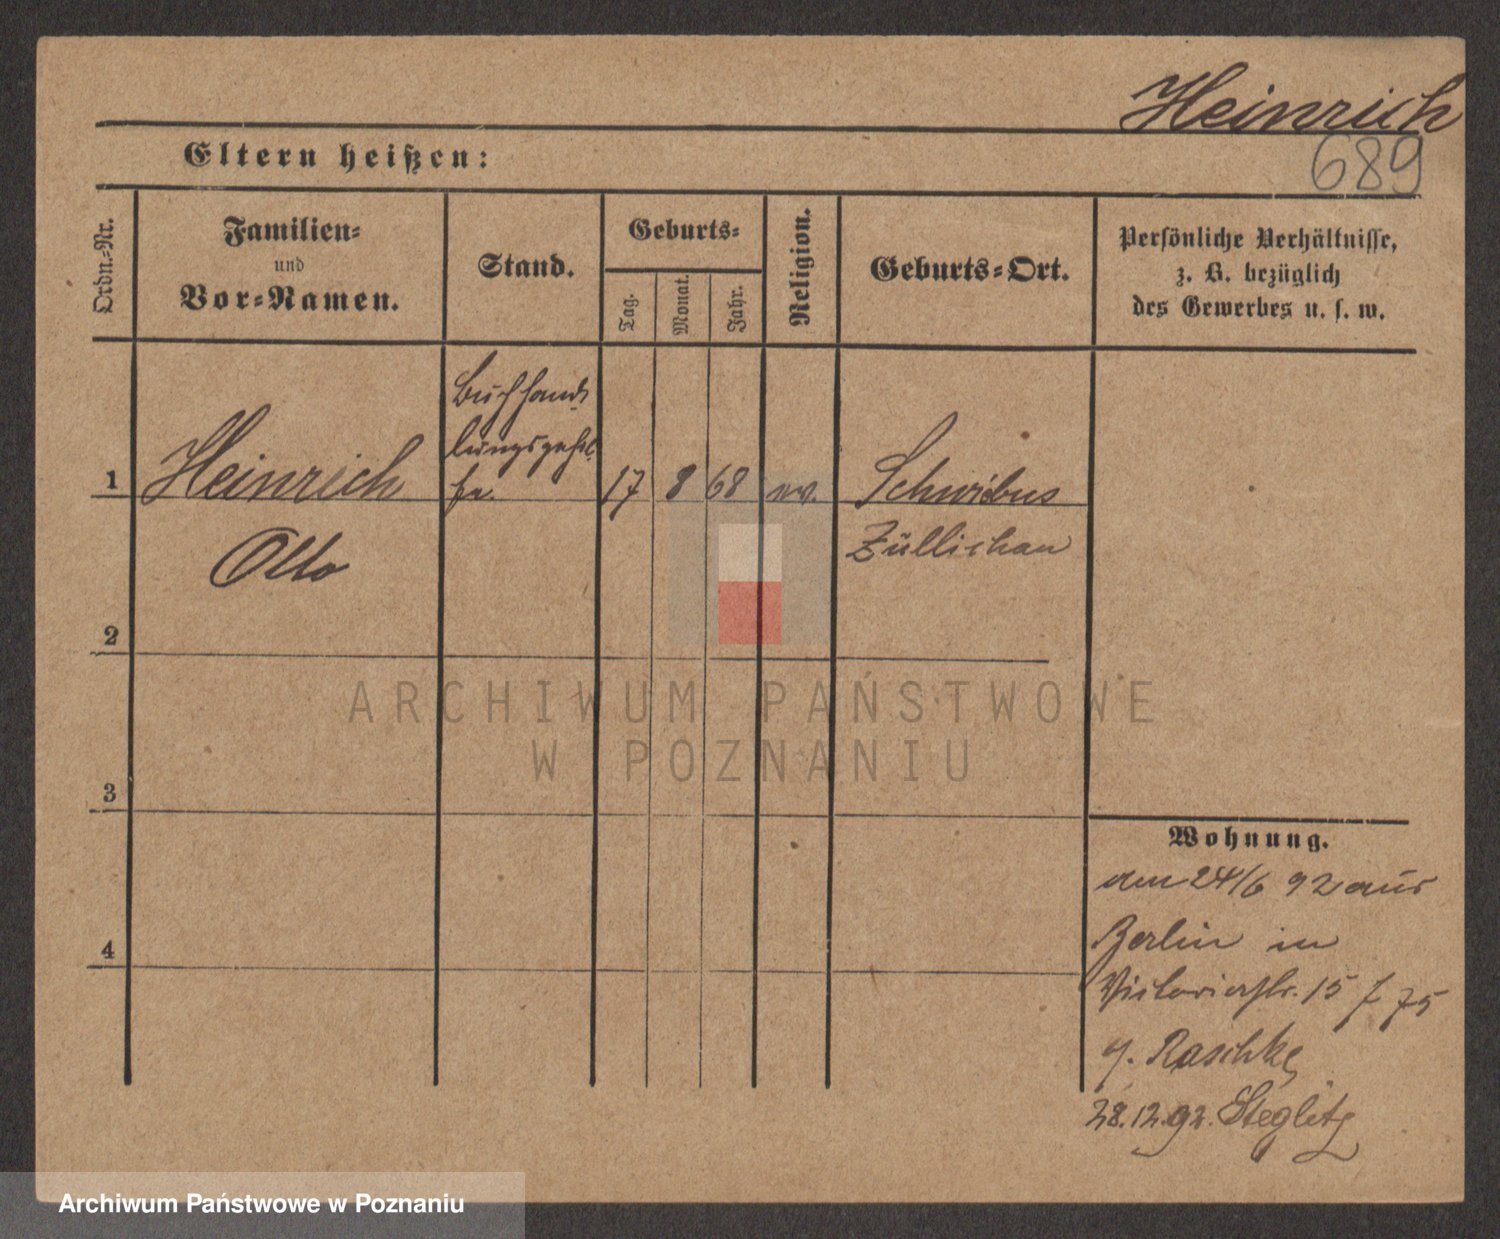 Heinrich
689
Eltern heißen:
Ordn.-Nr.
Familien-
und
Vor-Namen.
Stand.
Geburts-
Tag.
Monat.
Jahr.
Religion.
Geburts-Ort.
Persönliche Verhältnisse,
z. B. bezüglich
des Gewerbes u. s. w.
1
Heinrich
Otto
Buchhand-
lungsgehil-
fe.
17
8
68
ev.
Schwiebus
Züllichau
2
3
4
ARCHIWUM PAŃSTWOWE
W POZNANIU
Wohnung.
am 24/6 92 aus
Berlin in
Victoriastr. 15 f 75
Raschke
28.12.92. Steglitz
Archiwum Państwowe w Poznaniu